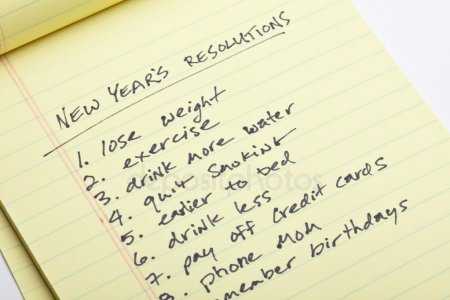 NEW YEAR'S RESOLUTIONS
1. lose weight
2. exercise
3. drink more water
4. quit smoking
5. earlier to bed
6. drink less
7. pay off credit cards
8. phone mom
member birthdays
depositphotos